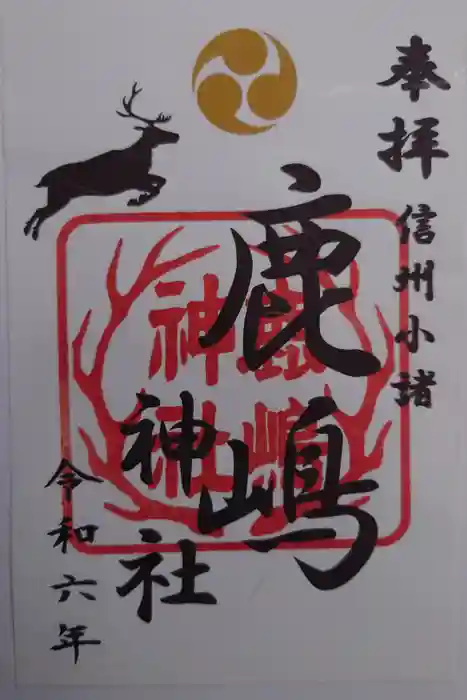 奉拝
信州小諸
鹿嶋
神社
鹿嶋
神社
令和六年